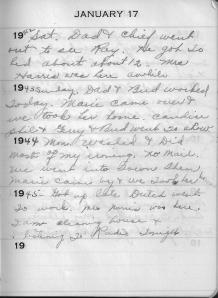 JANUARY 17
19 Sat. Dad & Chief went
out to see Ray. He got to
bed about about 12. Mrs
Harris was here
19 43 Sunday. Dad & Bud worked
Today. Marie came over &
we took her home.
& Bud went to show
1944 Mon. Washed & Did
most of my ironing. No mail.
We went into Town Then
Marie came by & we
1945 - Got up late Dutch went
To work. Mrs was here.
I am cleaning house &
Listening To Radio Tonight
19